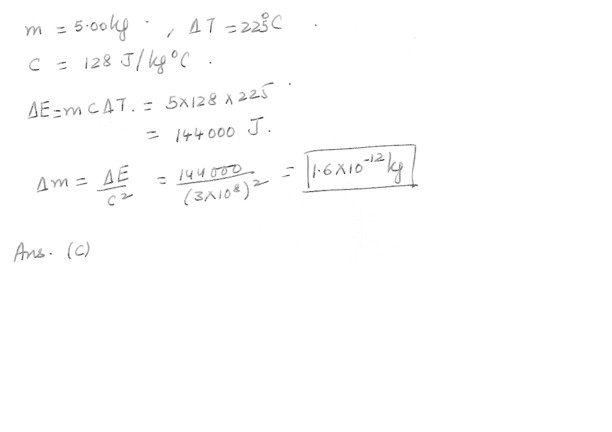 m = 5.00kg , ΔT = 225°C .
C = 128 J/kg°C .
ΔE = mCΔT. = 5×128×225
= 144000 J.
Δm = ΔE/C² = 144000/(3×10⁸)² = 1.6×10⁻¹² kg
Ans. (C)